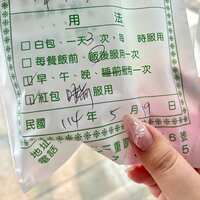 用法
□白包、一天3次、每 時服用
□每餐飯前、飯後服用一次
☑早、午、晚、睡前 一次
☑紅包 睡前服用
民國 114年5月9日
地址
電話